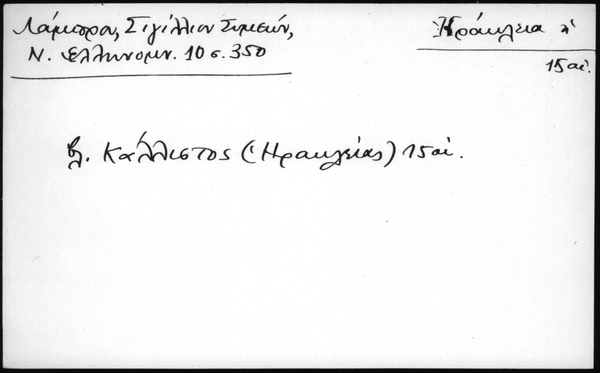 Λάμπρου, Σιγίλλιον Συμεών,
Ν. Ἑλληνομν. 10 σ. 350
Ἡράκλεια
15 αἰ.
βλ. Κάλλιστος (Ἡρακλείας) 15 αἰ.